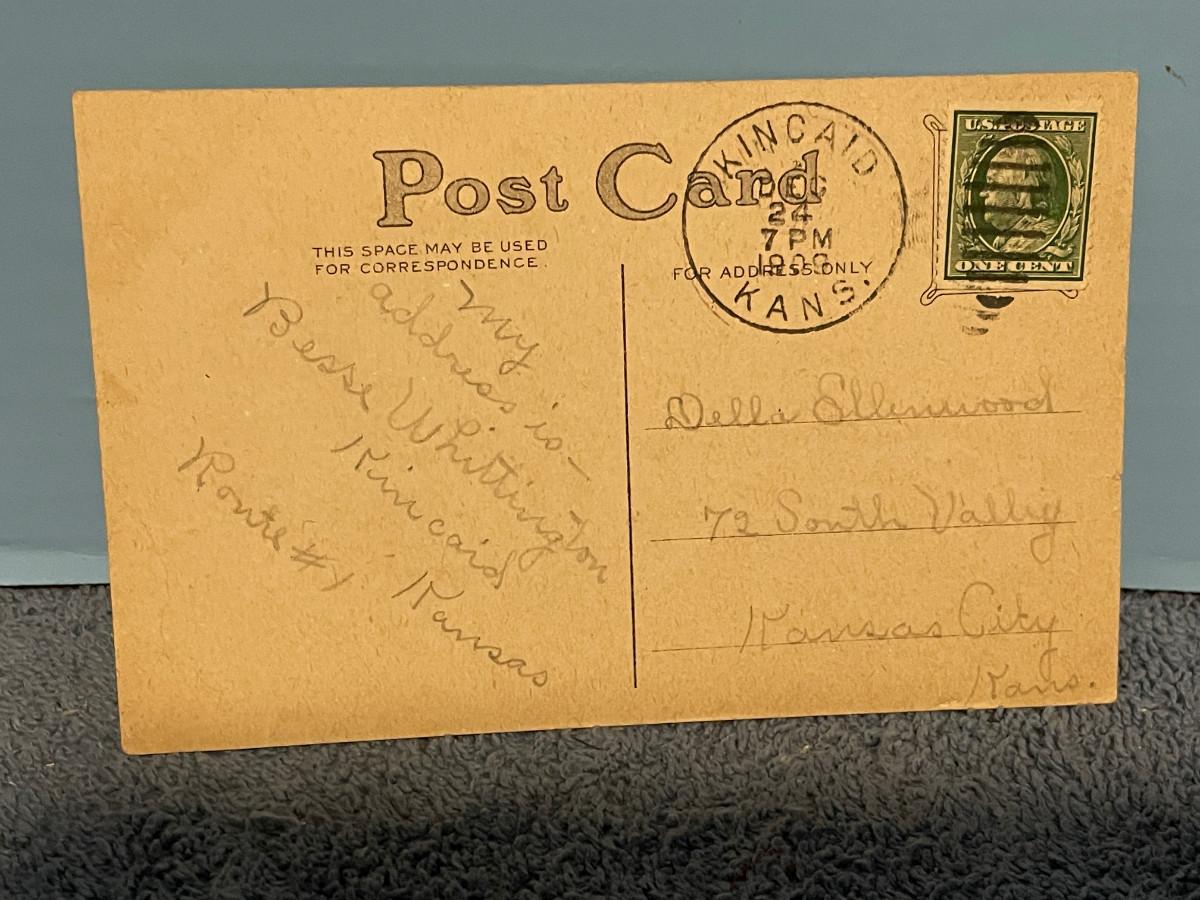 Post Card
THIS SPACE MAY BE USED
FOR CORRESPONDENCE.
FOR ADDRESS ONLY
KINCAID
DEC
24
7 PM
KANS.
U.S. POSTAGE
ONE CENT
My
address is—
Besse Whittington
Kincaid
Kansas
Route #1
Della Ellenwood
72 South Valley
Kansas City
Kans.